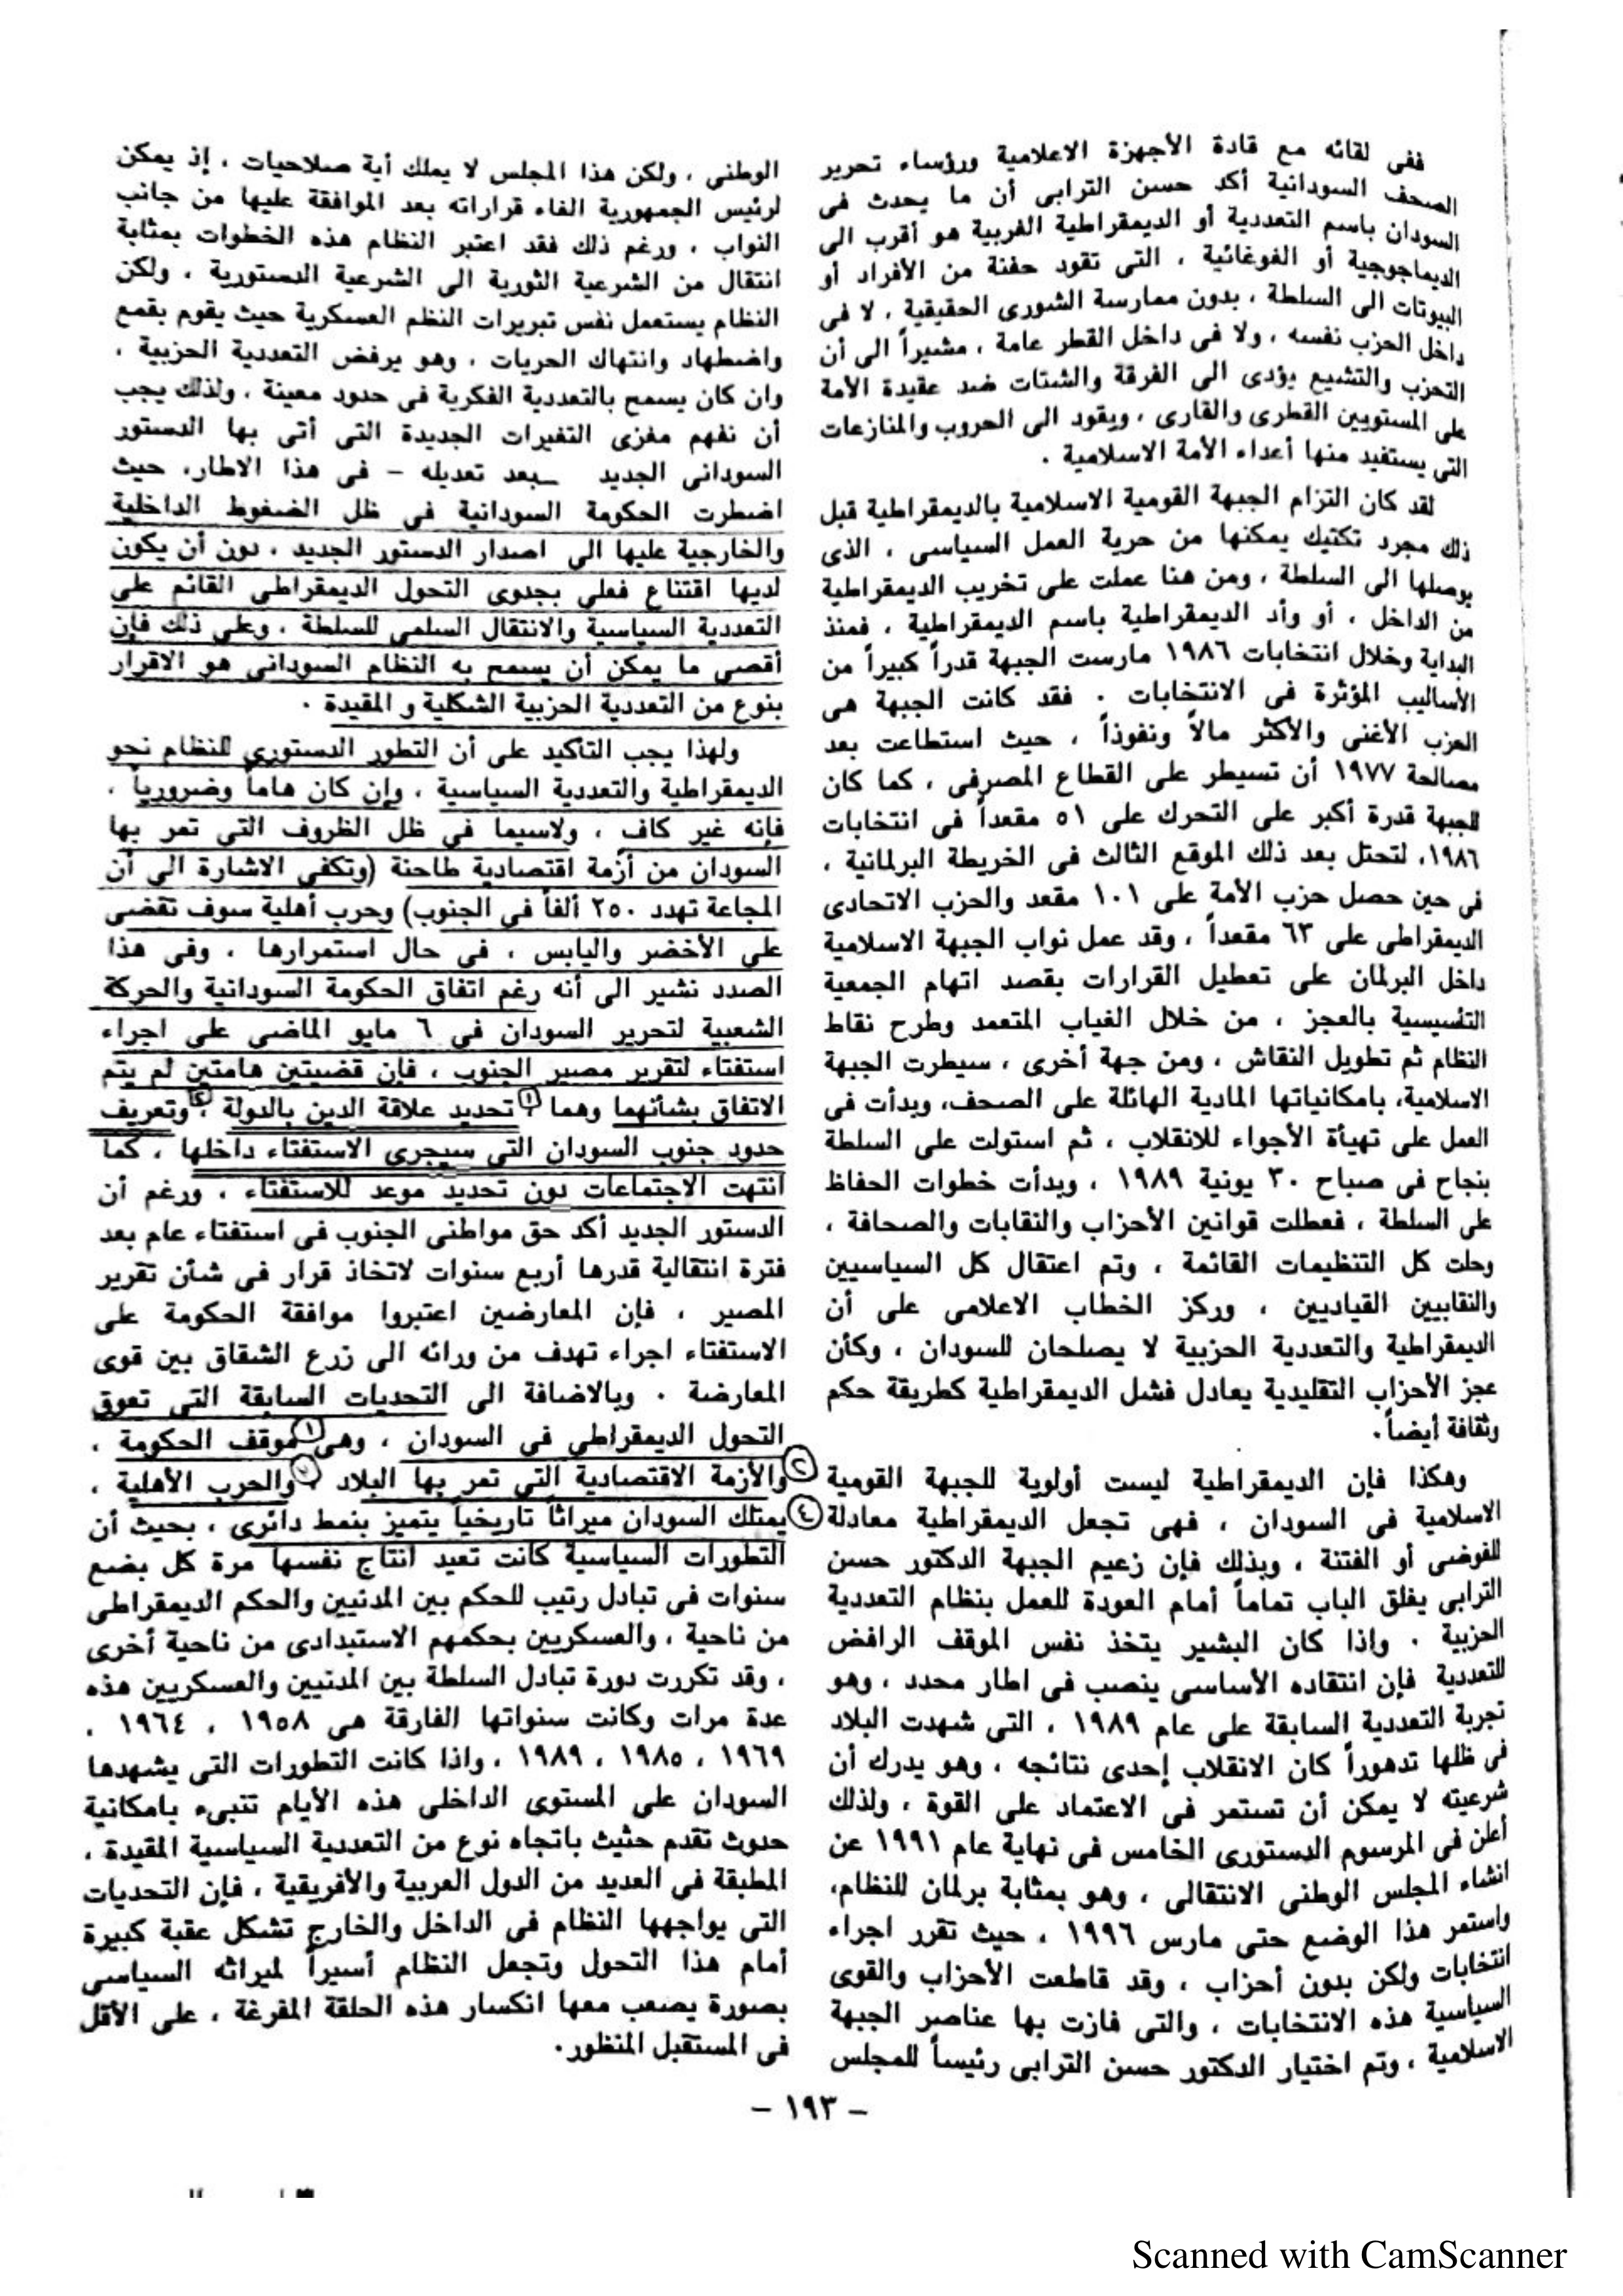 ففى لقائه مع قادة الأجهزة الاعلامية ورؤساء تحرير
الصحف السودانية أكد حسن الترابى أن ما يحدث فى
السودان باسم التعددية أو الديمقراطية الغربية هو أقرب الى
الديماجوجية أو الغوغائية ، التى تقود حفنة من الأفراد أو
البيوتات الى السلطة ، بدون ممارسة الشورى الحقيقية ، لا فى
داخل الحزب نفسه ، ولا فى داخل القطر عامة ، مشيراً الى أن
التحزب والتشيع يؤدى الى الفرقة والشتات ضد عقيدة الأمة
على المستويين القطرى والقارى ، ويقود الى الحروب والمنازعات
التى يستفيد منها أعداء الأمة الاسلامية .
لقد كان التزام الجبهة القومية الاسلامية بالديمقراطية قبل
ذلك مجرد تكتيك يمكنها من حرية العمل السياسى ، الذى
يوصلها الى السلطة ، ومن هنا عملت على تخريب الديمقراطية
من الداخل ، أو وأد الديمقراطية باسم الديمقراطية ، فمنذ
البداية وخلال انتخابات ١٩٨٦ مارست الجبهة قدراً كبيراً من
الأساليب المؤثرة فى الانتخابات . فقد كانت الجبهة هى
الحزب الأغنى والأكثر مالاً ونفوذاً ، حيث استطاعت بعد
مصالحة ١٩٧٧ أن تسيطر على القطاع المصرفى ، كما كان
للجبهة قدرة أكبر على التحرك على ٥١ مقعداً فى انتخابات
١٩٨٦، لتحتل بعد ذلك الموقع الثالث فى الخريطة البرلمانية ،
فى حين حصل حزب الأمة على ١٠١ مقعد والحزب الاتحادى
الديمقراطى على ٦٣ مقعداً ، وقد عمل نواب الجبهة الاسلامية
داخل البرلمان على تعطيل القرارات بقصد اتهام الجمعية
التأسيسية بالعجز ، من خلال الغياب المتعمد وطرح نقاط
النظام ثم تطويل النقاش ، ومن جهة أخرى ، سيطرت الجبهة
الاسلامية، بامكانياتها المادية الهائلة على الصحف، وبدأت فى
العمل على تهيأة الأجواء للانقلاب ، ثم استولت على السلطة
بنجاح فى صباح ٣٠ يونية ١٩٨٩ ، وبدأت خطوات الحفاظ
على السلطة ، فعطلت قوانين الأحزاب والنقابات والصحافة ،
وحلت كل التنظيمات القائمة ، وتم اعتقال كل السياسيين
والنقابيين القياديين ، وركز الخطاب الاعلامى على أن
الديمقراطية والتعددية الحزبية لا يصلحان للسودان ، وكأن
عجز الأحزاب التقليدية يعادل فشل الديمقراطية كطريقة حكم
وثقافة أيضاً.
وهكذا فإن الديمقراطية ليست أولوية للجبهة القومية
الاسلامية فى السودان ، فهى تجعل الديمقراطية معادلة
للفوضى أو الفتنة ، وبذلك فإن زعيم الجبهة الدكتور حسن
الترابى يغلق الباب تماماً أمام العودة للعمل بنظام التعددية
الحزبية . واذا كان البشير يتخذ نفس الموقف الرافض
للتعددية فإن انتقاده الأساسى ينصب فى اطار محدد ، وهو
تجربة التعددية السابقة على عام ١٩٨٩ ، التى شهدت البلاد
فى ظلها تدهوراً كان الانقلاب إحدى نتائجه ، وهو يدرك أن
شرعيته لا يمكن أن تستمر فى الاعتماد على القوة ، ولذلك
أعلن فى المرسوم الدستورى الخامس فى نهاية عام ١٩٩١ عن
انشاء المجلس الوطنى الانتقالى ، وهو بمثابة برلمان للنظام،
واستمر هذا الوضع حتى مارس ١٩٩٦ ، حيث تقرر اجراء
انتخابات ولكن بدون أحزاب ، وقد قاطعت الأحزاب والقوى
السياسية هذه الانتخابات ، والتى فازت بها عناصر الجبهة
الاسلامية ، وتم اختيار الدكتور حسن الترابى رئيساً للمجلس
الوطنى ، ولكن هذا المجلس لا يملك أية صلاحيات ، إذ يمكن
لرئيس الجمهورية الغاء قراراته بعد الموافقة عليها من جانب
النواب ، ورغم ذلك فقد اعتبر النظام هذه الخطوات بمثابة
انتقال من الشرعية الثورية الى الشرعية الدستورية ، ولكن
النظام يستعمل نفس تبريرات النظم العسكرية حيث يقوم بقمع
واضطهاد وانتهاك الحريات ، وهو يرفض التعددية الحزبية ،
وان كان يسمح بالتعددية الفكرية فى حدود معينة ، ولذلك يجب
أن نفهم مغزى التغيرات الجديدة التى أتى بها الدستور
السودانى الجديد –بعد تعديله – فى هذا الاطار، حيث
اضطرت الحكومة السودانية فى ظل الضغوط الداخلية
والخارجية عليها الى اصدار الدستور الجديد ، دون أن يكون
لديها اقتناع فعلى بجدوى التحول الديمقراطى القائم على
التعددية السياسية والانتقال السلمى للسلطة ، وعلى ذلك فإن
أقصى ما يمكن أن يسمح به النظام السودانى هو الاقرار
بنوع من التعددية الحزبية الشكلية و المقيدة .
ولهذا يجب التأكيد على أن التطور الدستورى للنظام نحو
الديمقراطية والتعددية السياسية ، وإن كان هاماً وضرورياً ،
فإنه غير كاف ، ولاسيما فى ظل الظروف التى تمر بها
السودان من أزمة اقتصادية طاحنة (وتكفى الاشارة الى أن
المجاعة تهدد ٢٥٠ ألفاً فى الجنوب) وحرب أهلية سوف تقضى
على الأخضر واليابس ، فى حال استمرارها ، وفى هذا
الصدد نشير الى أنه رغم اتفاق الحكومة السودانية والحركة
الشعبية لتحرير السودان فى ٦ مايو الماضى على اجراء
استفتاء لتقرير مصير الجنوب ، فإن قضيتين هامتين لم يتم
الاتفاق بشأنهما وهما ١ تحديد علاقة الدين بالدولة ، ٢ وتعريف
حدود جنوب السودان التى سيجرى الاستفتاء داخلها ، كما
انتهت الاجتماعات دون تحديد موعد للاستفتاء ، ورغم أن
الدستور الجديد أكد حق مواطنى الجنوب فى استفتاء عام بعد
فترة انتقالية قدرها أربع سنوات لاتخاذ قرار فى شأن تقرير
المصير ، فإن المعارضين اعتبروا موافقة الحكومة على
الاستفتاء اجراء تهدف من ورائه الى زرع الشقاق بين قوى
المعارضة . وبالاضافة الى التحديات السابقة التى تعوق
التحول الديمقراطى فى السودان ، وهى ١ موقف الحكومة ،
٢ والأزمة الاقتصادية التى تمر بها البلاد ، ٣ والحرب الأهلية ،
٤ يمتلك السودان ميراثاً تاريخياً يتميز بنمط دائرى ، بحيث أن
التطورات السياسية كانت تعيد انتاج نفسها مرة كل بضع
سنوات فى تبادل رتيب للحكم بين المدنيين والحكم الديمقراطى
من ناحية ، والعسكريين بحكمهم الاستبدادى من ناحية أخرى
، وقد تكررت دورة تبادل السلطة بين المدنيين والعسكريين هذه
عدة مرات وكانت سنواتها الفارقة هى ١٩٥٨ ، ١٩٦٤ ،
١٩٦٩ ، ١٩٨٥ ، ١٩٨٩ ، واذا كانت التطورات التى يشهدها
السودان على المستوى الداخلى هذه الأيام تنبىء بامكانية
حدوث تقدم حثيث باتجاه نوع من التعددية السياسية المقيدة ،
المطبقة فى العديد من الدول العربية والأفريقية ، فإن التحديات
التى يواجهها النظام فى الداخل والخارج تشكل عقبة كبيرة
أمام هذا التحول وتجعل النظام أسيراً لميراثه السياسى
بصورة يصعب معها انكسار هذه الحلقة المفرغة ، على الأقل
فى المستقبل المنظور.
– ١٩٣ –
Scanned with CamScanner